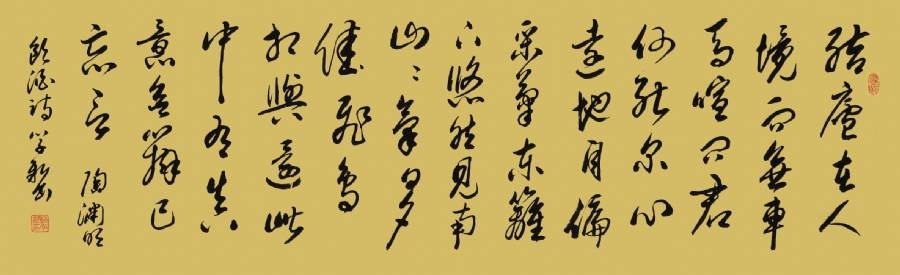 結廬在人
境而無車
馬喧問君
何能尔心
遠地自偏
采菊東籬
下悠然見南
山〻氣日夕
佳飛鳥
相與還此
中有真
意欲辨已
忘言 陶淵明
飲酒詩